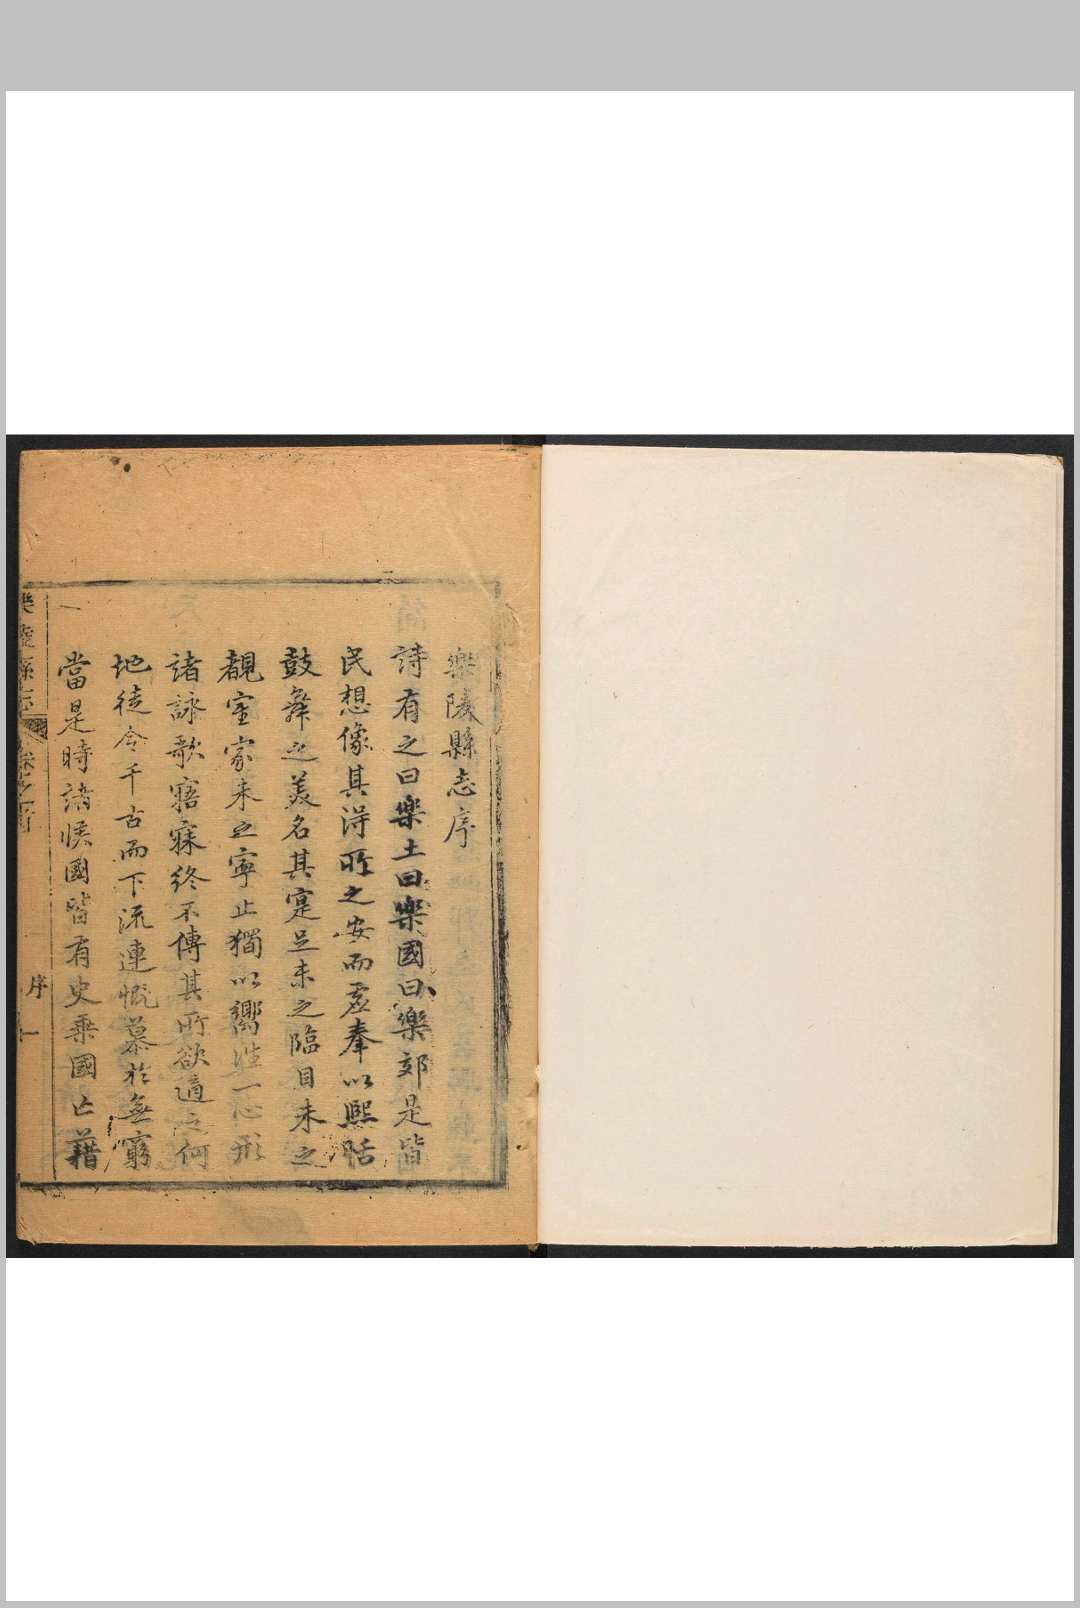 樂陵縣志序
詩有之曰樂土曰樂國曰樂郊是皆
民想像其得所之安而虛奉以熙恬
鼓舞之美名其寔足未之臨目未之
覩室家未之寧止獨以嚮往一心形
諸詠歌寤寐終不傳其所欲適之何
地徒令千古而下流連慨慕於無窮
當是時諸侯國皆有史乘國亡籍
樂陵縣志
序
一